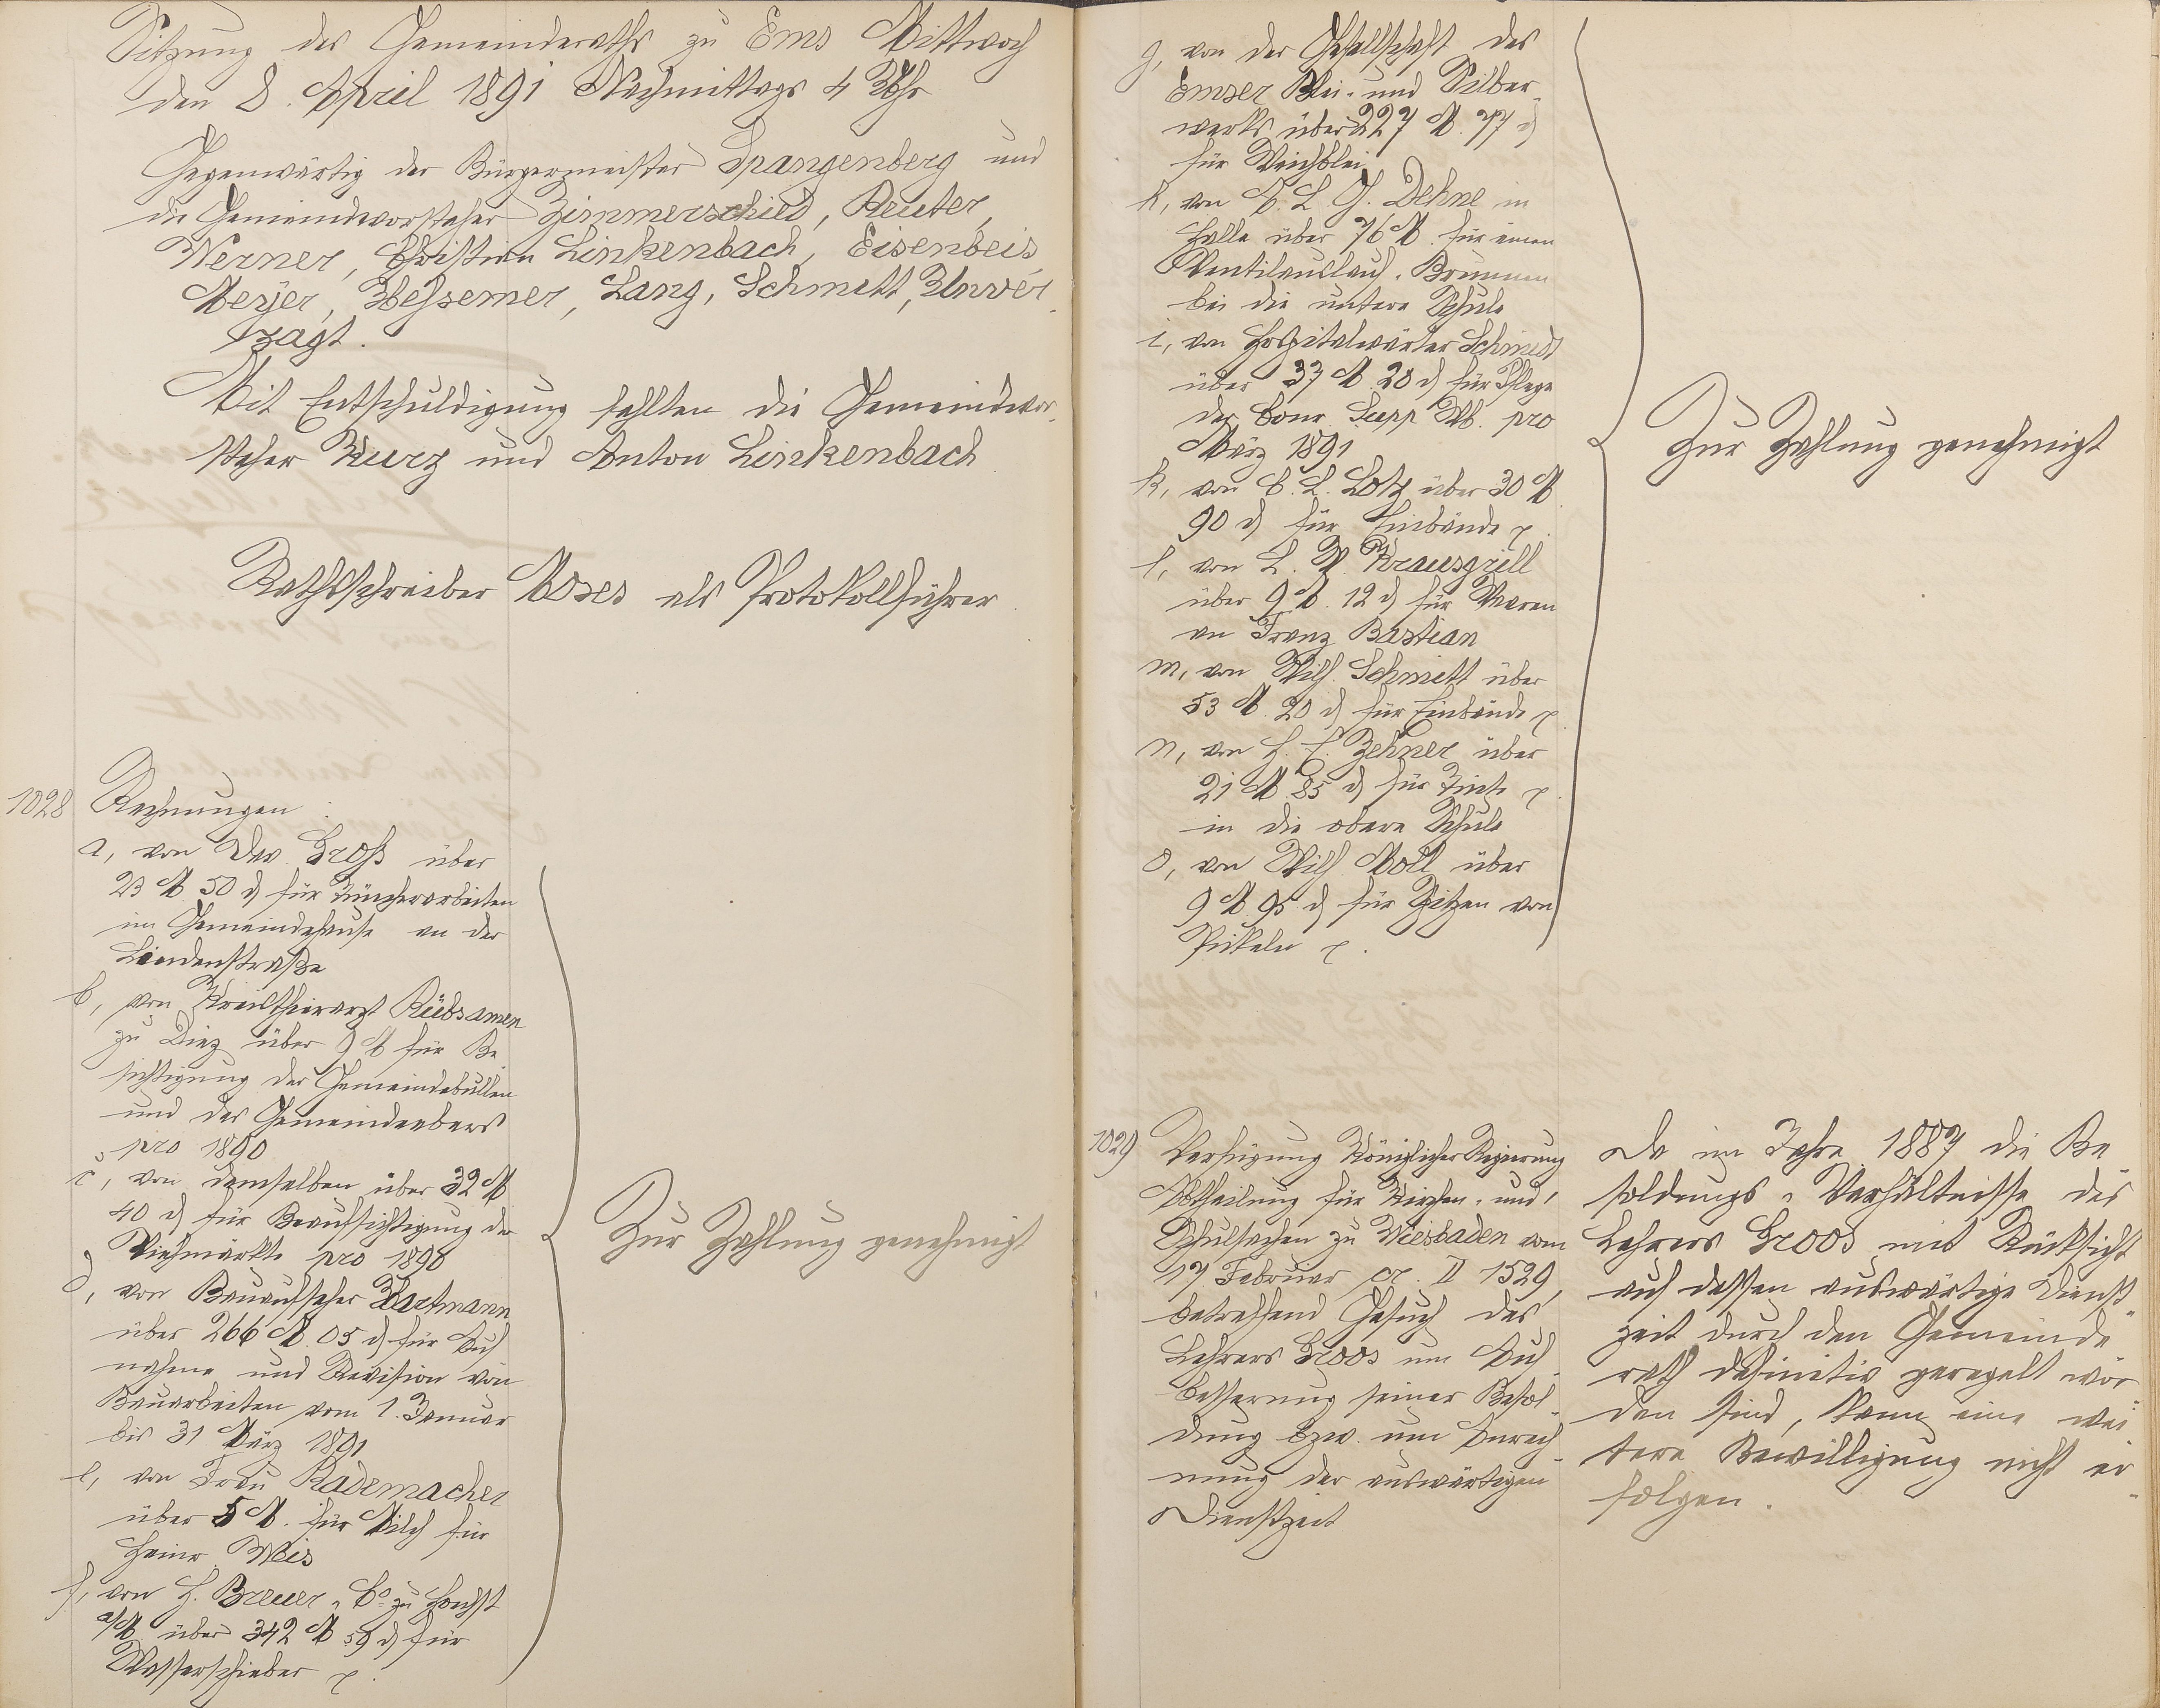 Sitzung des Gemeinderaths zu Ems Mittwoch
den 8. April 1891 Nachmittags 4 Uhr
Gegenwärtig der Bürgermeister Spangenberg und
die Gemeindevorsteher Zimmerschied, Reuter,
Werner, Christian Linkenbach, Eisenbeis,
Meyer, Hessemer, Lang, Schmitt, Unver-
zagt.
Mit Entschuldigung fehlten die Gemeindevor-
steher Kurz und Anton Linkenbach
Rathsschreiber Moses als Protokollführer.
1028 Rechnungen:
a, von Dav. Groß über
23 M 50 d für Tüncherarbeiten
im Gemeindehause an der
Lindenstraße
b, von Kreisthierarzt Rübsamen
zu Diez über 9 M für Be-
sichtigung der Gemeindebullen
und des Gemeindeebers
pro 1890
c, von demselben über 32 M
40 d für Beaufsichtigung der
Viehmärkte pro 1890
d, von Bauaufseher Hartmann
über 266 M. 05 d für Auf-
nahme und Revision von
Bauarbeiten vom 1. Januar
bis 31 März 1891
e, von Frau Rademacher
über 5 M. für Milch für
Heinr. Weis
f, von H. Breuer & Co zu Höchst
a/M. über 342 M 59 d für
Wasserschieber p.
Zur Zahlung genehmigt
g, von der Gesellschaft des
Emser Blei- und Silber-
werks über 227 M. 77 d
für Weichblei
h, von A. L. G. Dehne in
Halle über 76 M. für einen
Ventilauslauf-Brunnen
bei die untere Schule
i, von Hospitalwärter Schmidt
über 37 M. 20 d für Pflege
des Conr. Supp Wb. pro
März 1891
k, von C. L. Lotz über 30 M
90 d für Einbände p.
l, von L. W. Krausgrill
über 9 M. 12 d für Waren
an Franz Bastian
m, von Wilh. Schmitt über
53 M. 20 d für Einbände p.
n, von H. E. Zehner über
21 M. 85 d für Tinte p.
in die obere Schule
o, von Wilh. Moll über
9 M. 95 d für Spitzen von
Pickeln p.
Zur Zahlung genehmigt
1029 Verfügung Königlicher Regierung
Abtheilung für Kirchen- und
Schulsachen zu Wiesbaden vom
17 Februar cr. II 1529,
betreffend Gesuch des
Lehrers Groos um Auf-
besserung seiner Besol-
dung bzw. um Anrech-
nung der auswärtigen
Dienstzeit
Da im Jahre 1887 die Be-
soldungs-Verhältnisse des
Lehrers Groos mit Rücksicht
auf dessen auswärtige Dienst-
zeit durch den Gemeinde-
rath definitiv geregelt wor-
den sind, kann eine wei-
tere Bewilligung nicht er-
folgen.